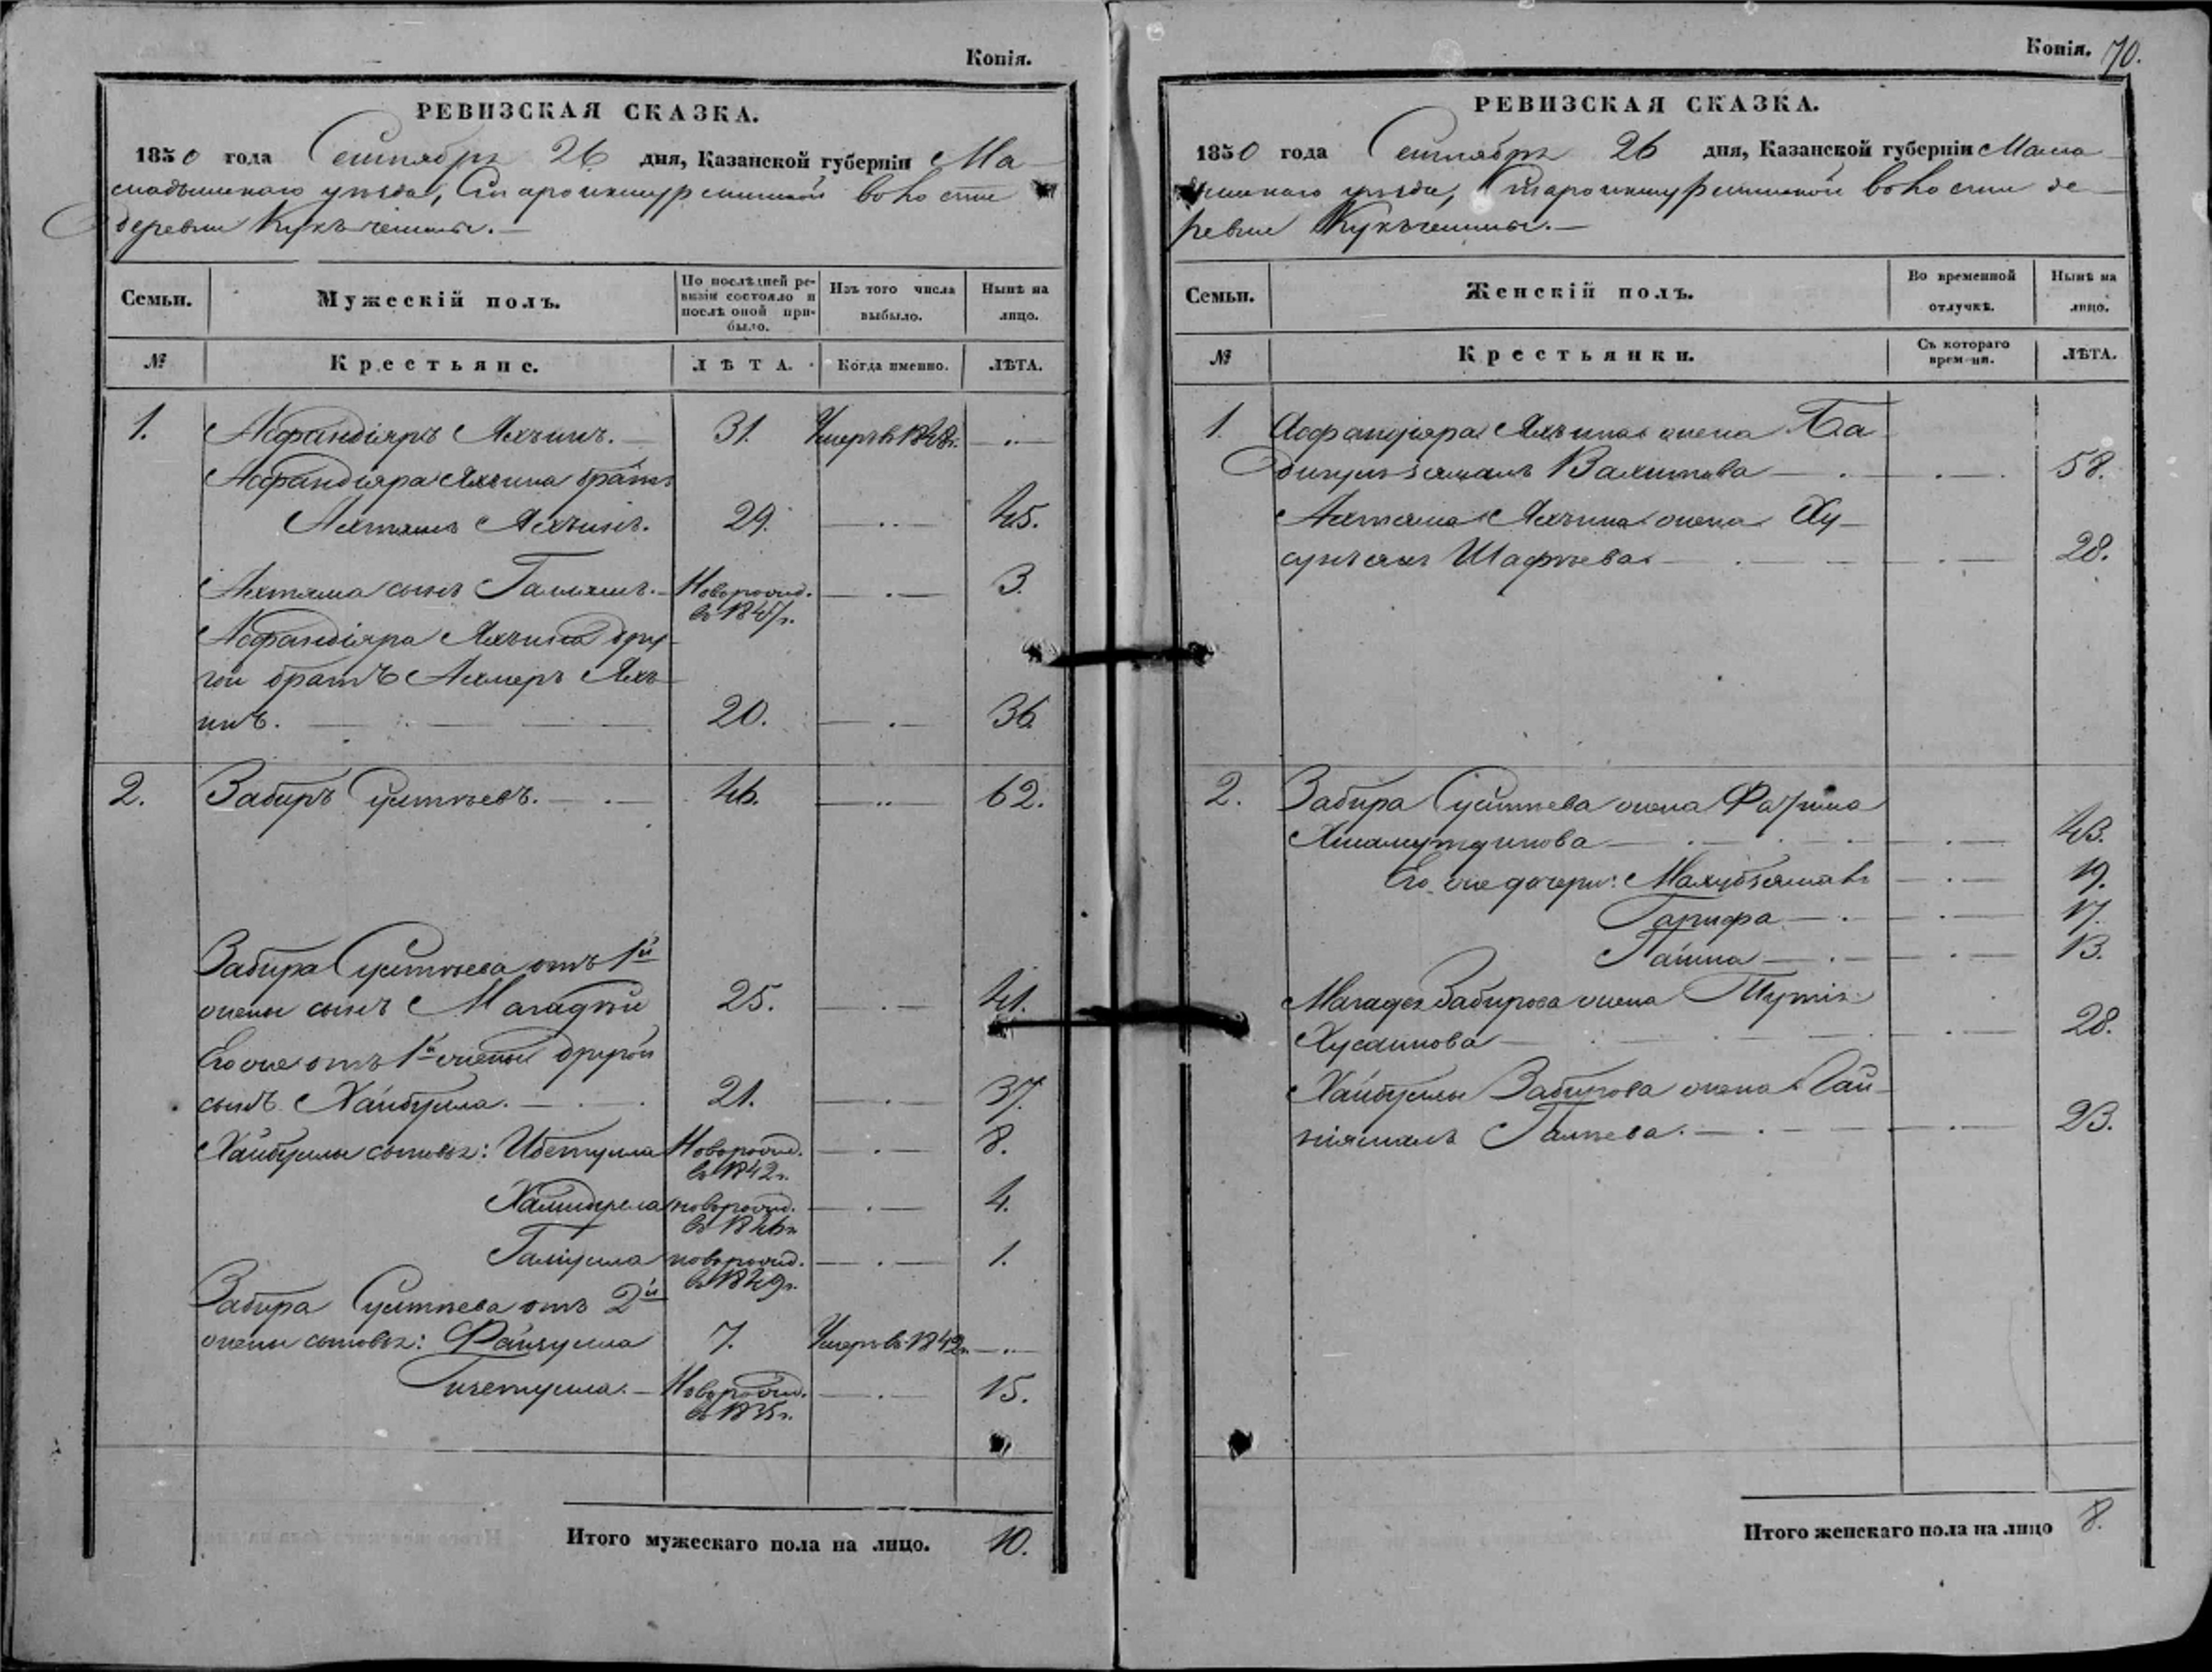 Копія.
РЕВИЗСКАЯ СКАЗКА.
1850 года Сентября 26 дня, Казанской губерніи Ма-
мадышскаго уѣзда, волости
деревни
Семьи.
Мужескій полъ.
По послѣдней ре-
визіи состояло и
послѣ оной при-
было.
Изъ того числа
выбыло.
Нынѣ на
лицо.
№
Крестьяне.
ЛѢТА.
Когда именно.
ЛѢТА.
1. Асфандіяръ Яхъинъ. 31. Умеръ в 1848г.
Асфандіяра Яхъина братъ
Ахтямъ Яхъинъ. 29. 45.
Ахтяма сынъ Галлямъ. Новорожд. 3.
въ 1847г.
Асфандіяра Яхъина дру-
гой братъ Ахмеръ Яхъ-
инъ. 20. 36.
2. Забиръ 46. 62.
Забира отъ 1й
жены сынъ Магадѣй 25. 41.
Его же отъ 1й жены другой
сынъ Хайбулла. 21. 37.
Хайбуллы сыновья: Новорожд. 8.
въ 1842г.
новорожд. 4.
въ 1846г.
Галіулла новорожд. 1.
въ 1849г.
Забира отъ 2й
жены сыновья: 7. Умеръ въ 1842г.
Новорожд. 15.
въ 1835г.
Итого мужескаго пола на лицо. 10.
Копія. 70.
РЕВИЗСКАЯ СКАЗКА.
1850 года Сентября 26 дня, Казанской губерніи Мама-
дышскаго уѣзда, волости де-
ревни
Семьи.
Женскій полъ.
Во временной
отлучкѣ.
Нынѣ на
лицо.
№
Крестьянки.
Съ котораго
времени.
ЛѢТА.
1. Асфандіяра Яхъина жена Ба-
Валитова 58.
Ахтяма Яхъина жена Ху-
Шафѣева 28.
2. Забира жена Фатима
43.
Его же дочери: 19.
Гарифа 17.
13.
Забирова жена
Хусаинова 28.
Хайбуллы Забирова жена Гай-
ніямалъ Галѣева. 23.
Итого женскаго пола на лицо 8.